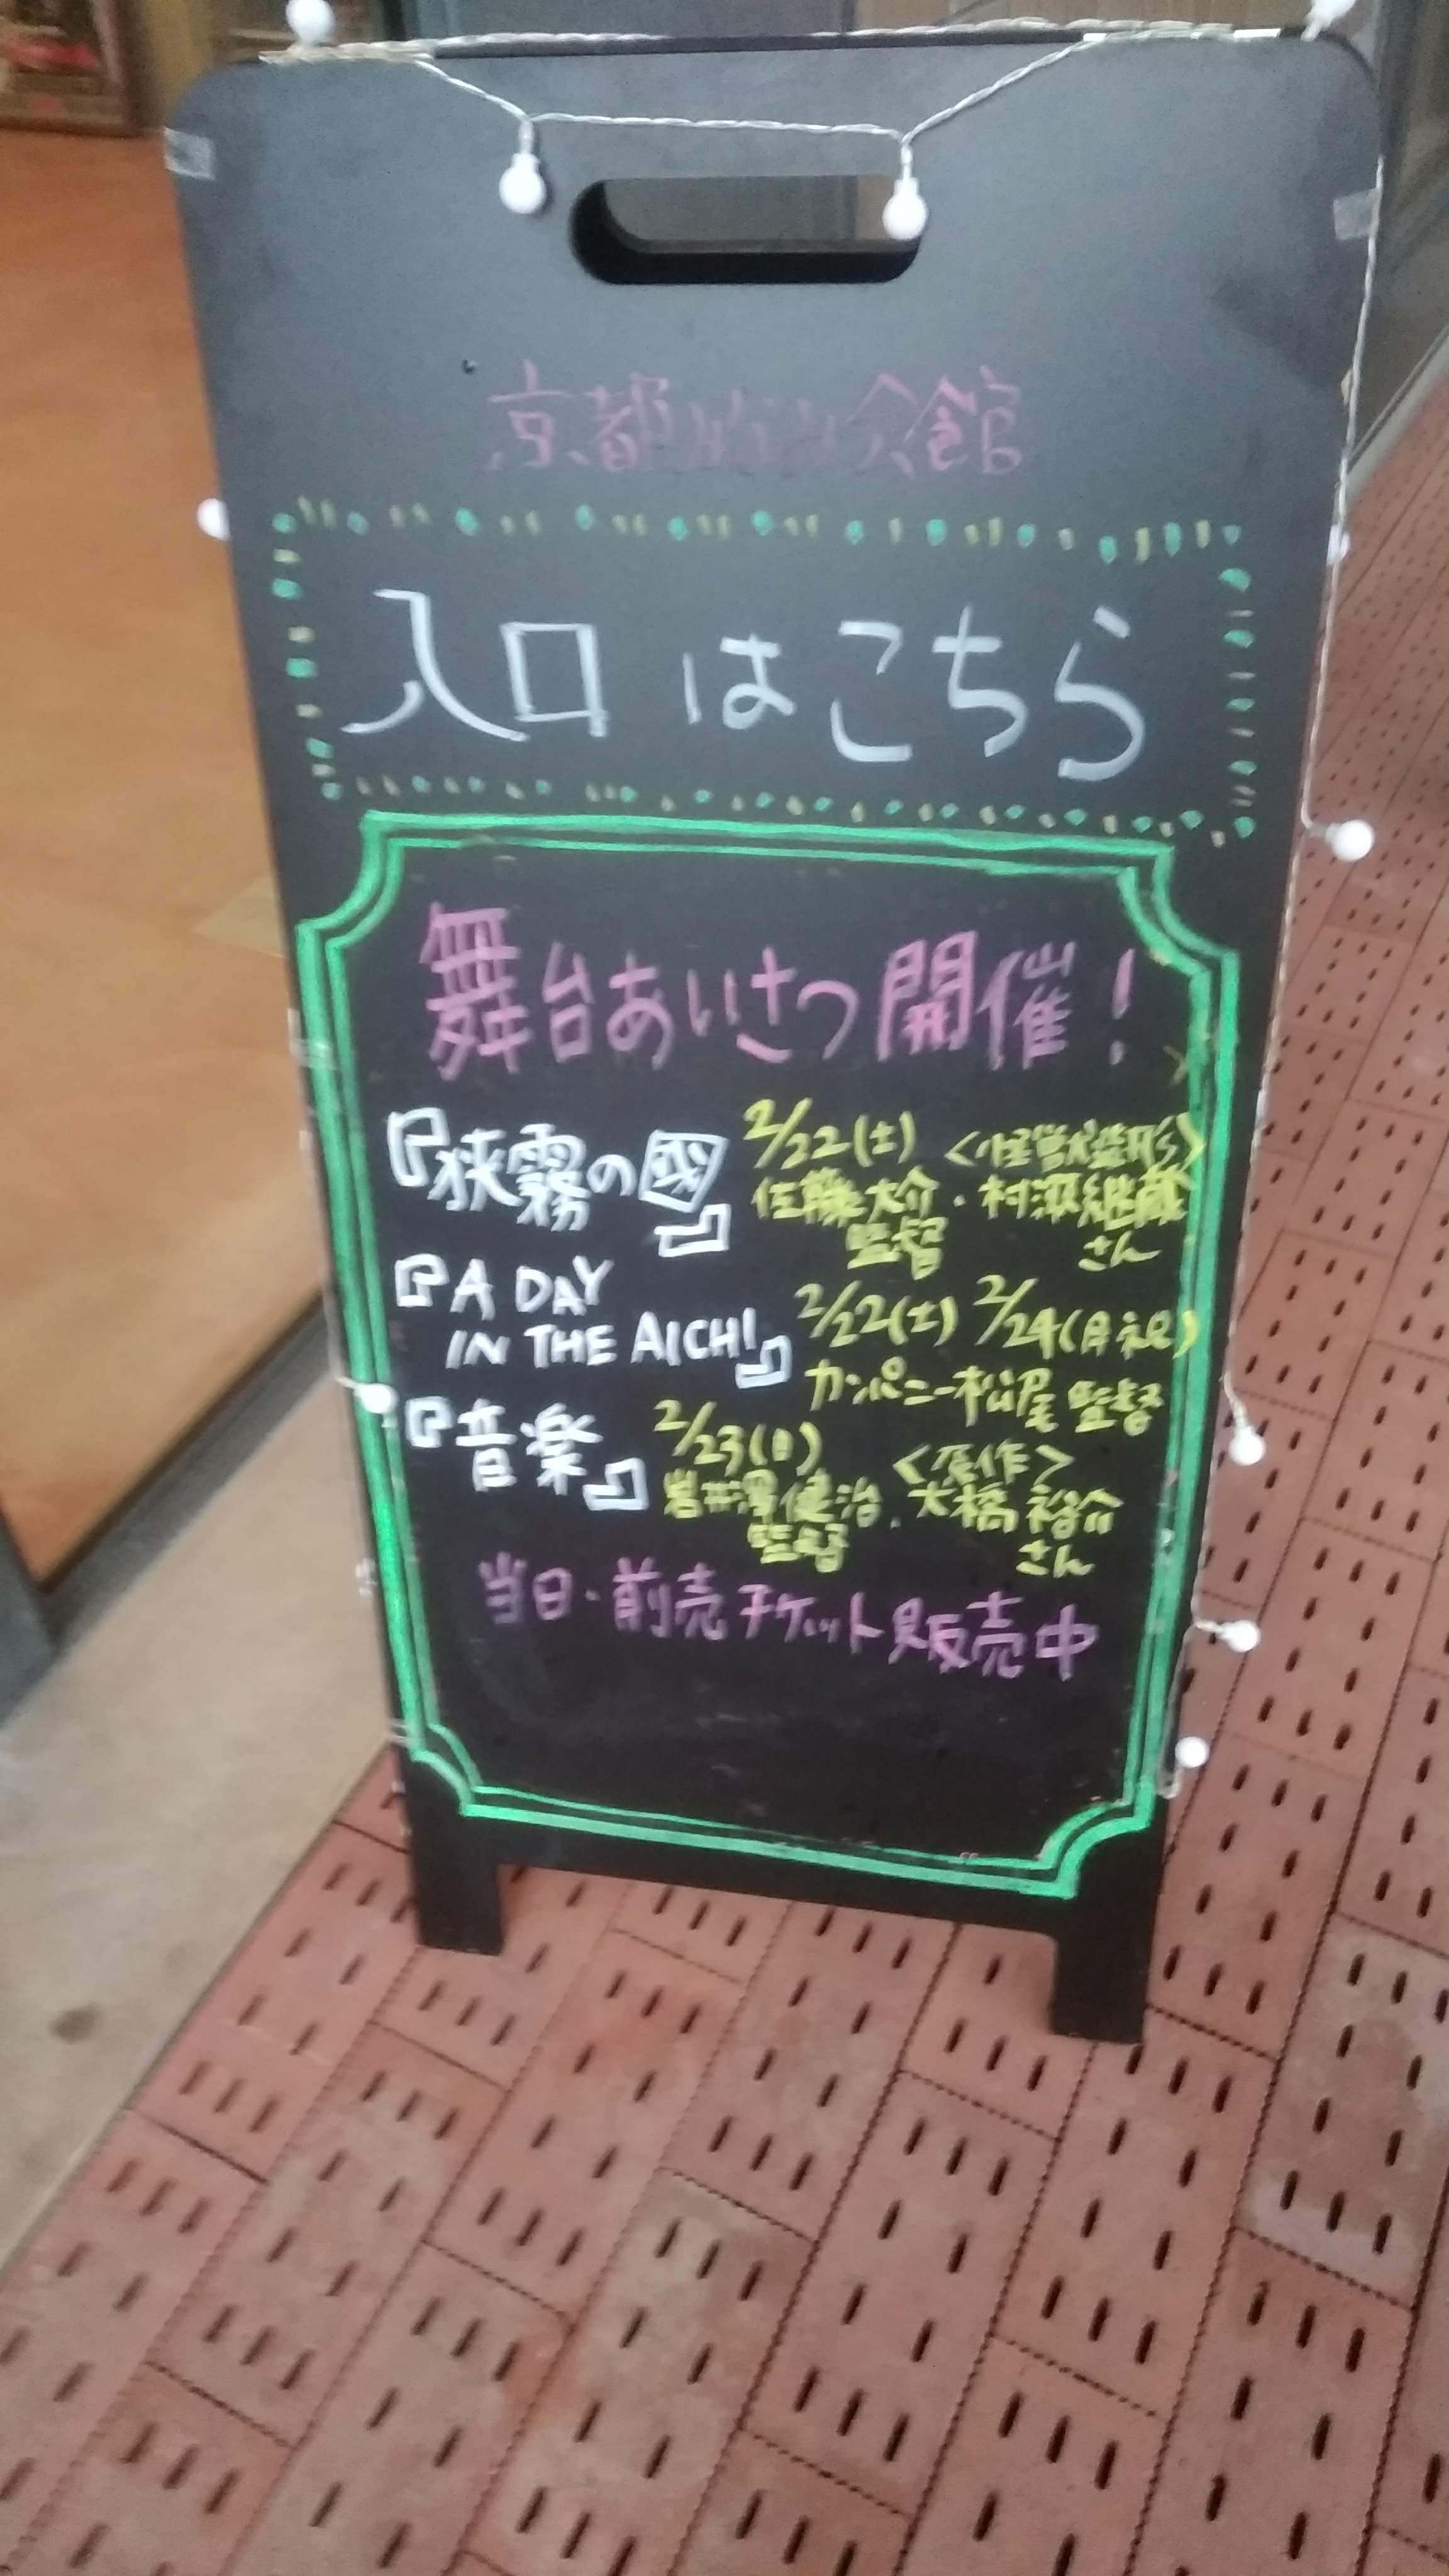 京都みなみ会館
入口はこちら
舞台あいさつ開催!
『狭霧の國』
2/22(土) <怪獣造形>
佐藤大介・村瀬継蔵
監督 さん
『A DAY
IN THE AICHI』
2/22(土) 2/24(月祝)
カンパニー松尾 監督
『音楽』
2/23(日) <原作>
岩井澤健治・大橋裕介
監督 さん
当日・前売チケット販売中